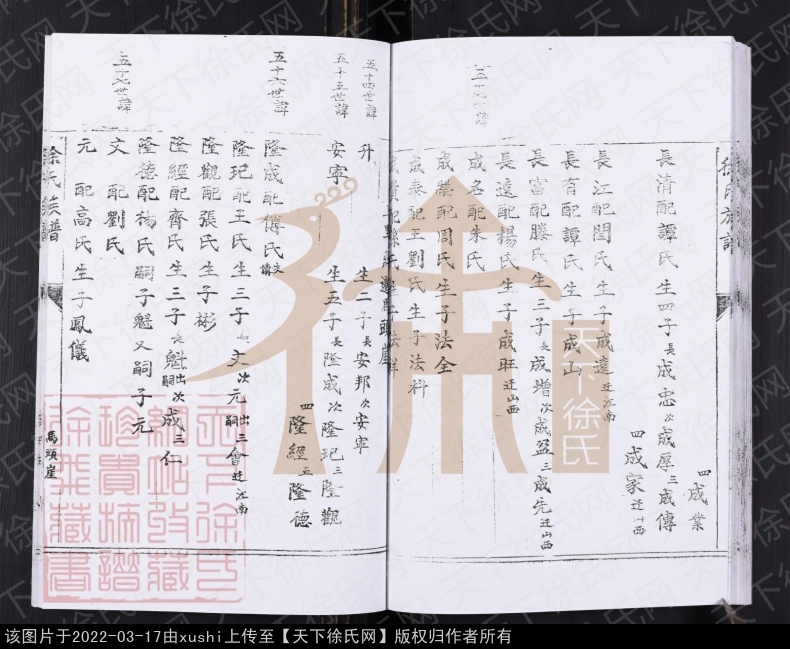 徐氏族譜
五十七世諱
長清配譚氏生四子長成忠次成厚三成傳
四成業
長江配閆氏生子成遠迁江南
四成家迁山西
長有配譚氏生子成山
長富配滕氏生三子長成增次成盆三成先迁山西
長遠配楊氏生子成旺迁山西
成名配朱氏
成榮配周氏生子法全
成泰配王劉氏生子法科
五十四世諱
升生二子長安邦次安寧
五十五世諱
安寧生五子長隆成次隆玘三隆觀
四隆經五隆德
五十六世諱
隆成配傅氏
隆玘配王氏生三子長文次元出嗣三會迁江南
隆觀配張氏生子彬
隆經配齊氏生三子長魁出嗣次成三仁
隆德配楊氏嗣子魁又嗣子元
五十七世諱
文配劉氏
元配高氏生子鳳儀
徐氏族譜
馬頭崖
天下徐氏
天下徐氏网
该图片于2022-03-17由xushi上传至【天下徐氏网】版权归作者所有